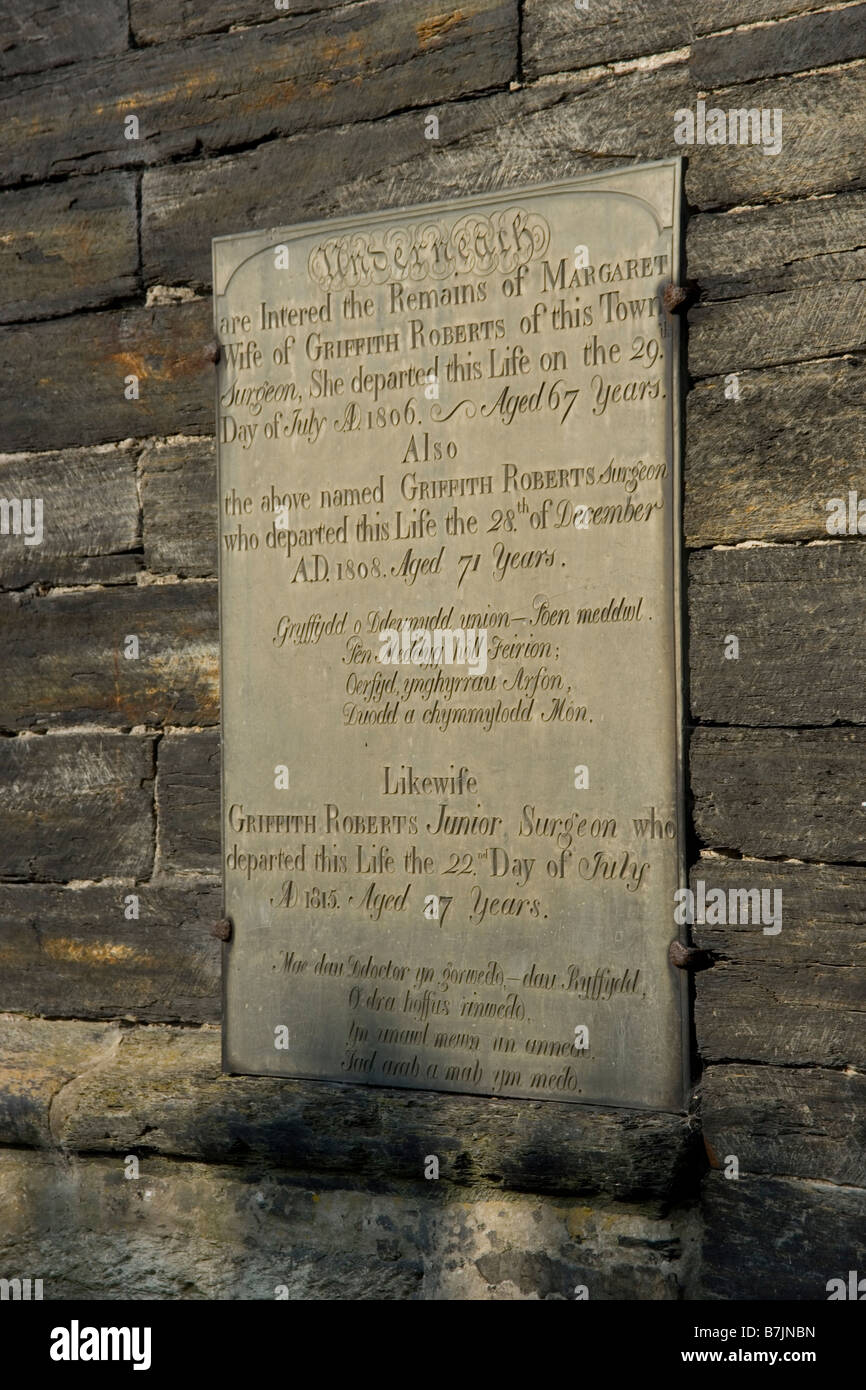 Underneath
are Intered the Remains of MARGARET
Wife of GRIFFITH ROBERTS of this Town
Surgeon, She departed this Life on the 29.th
Day of July AD. 1806. Aged 67 Years.
Also
the above named GRIFFITH ROBERTS Surgeon
who departed this Life the 28.th of December
A.D. 1808. Aged 71 Years.
Gryffydd o Ddevnydd union – Poen meddwl.
Pên Meddyg holl Feirion;
Oerfyd, ynghyrrau Arfon,
Duodd a chymmylodd Môn.
Likewife
GRIFFITH ROBERTS Junior Surgeon who
departed this Life the 22.nd Day of July
AD 1815. Aged Years.
Mae dau Ddoctor yn gorwedd, – dau Ryffydd,
O dra hoffus rinwedd,
Yn unawl mewn un annedd.
Tad arab a mab ym medd.
alamy
a
Image ID: B7JNBN
www.alamy.com